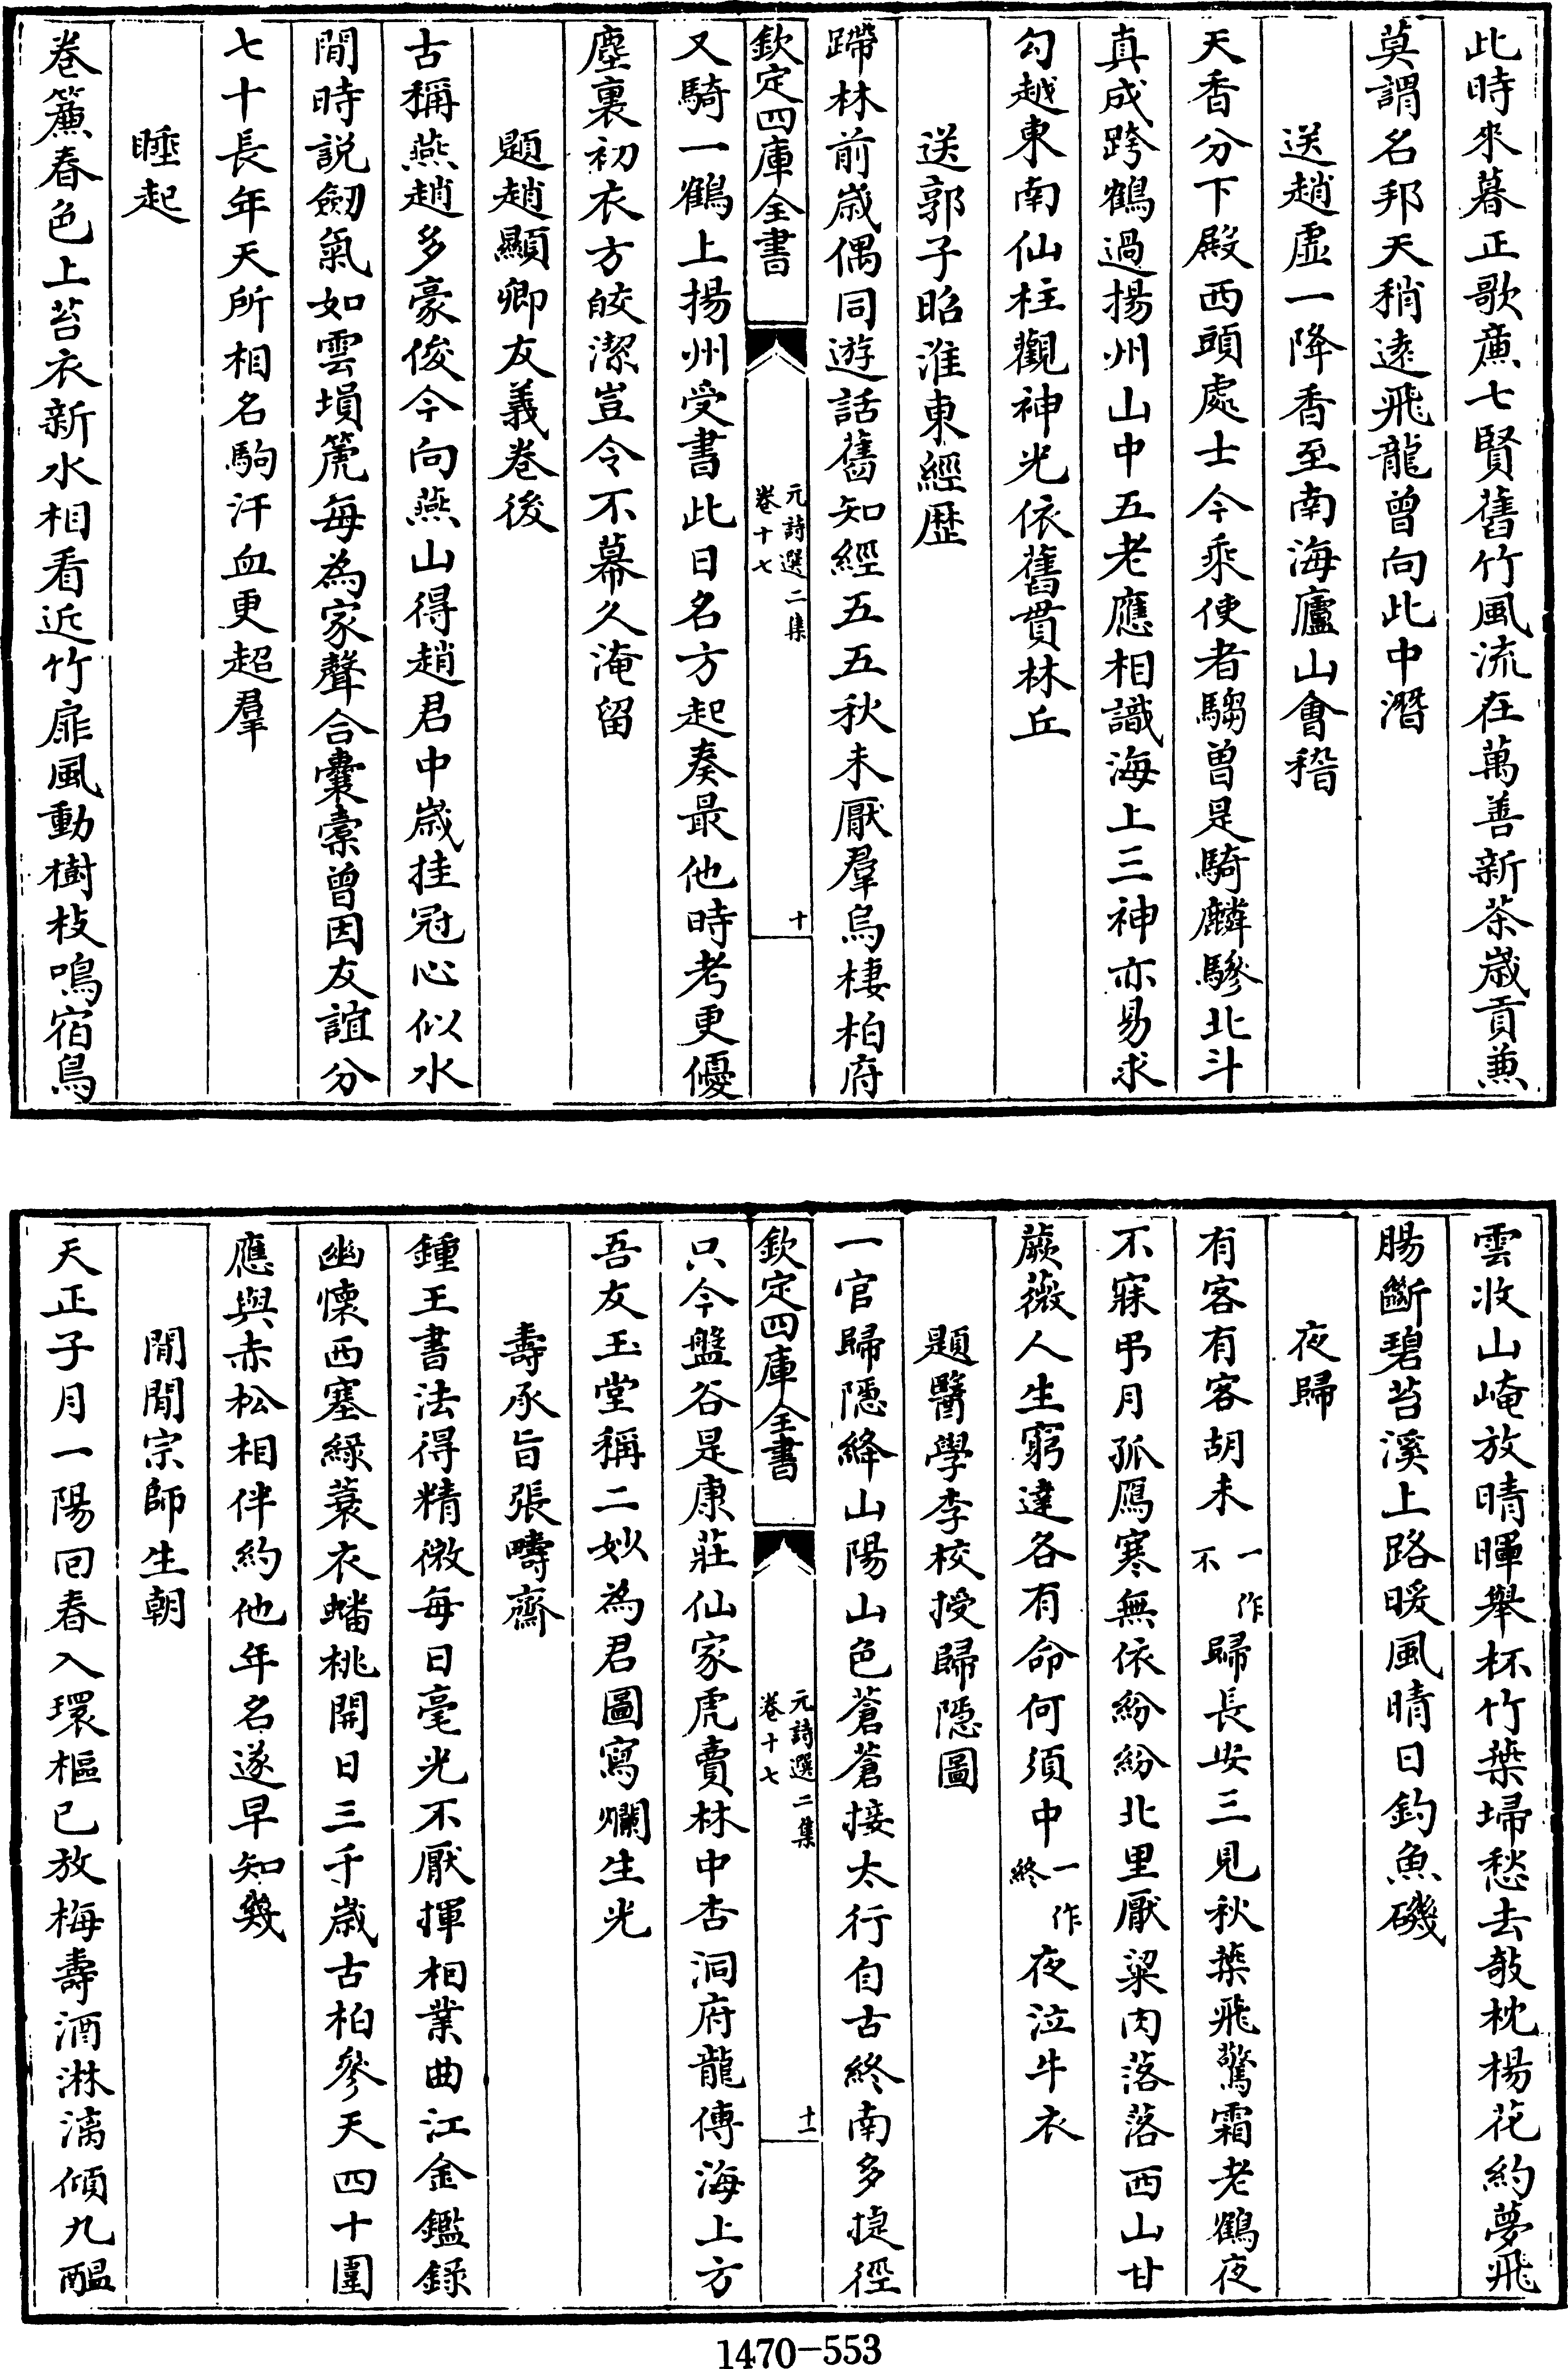 此時來暮正歌廉七賢舊竹風流在萬善新茶歲貢兼
莫謂名邦天稍遠飛龍曾向此中潛
送趙虛一降香至南海廬山會稽
天香分下殿西頭處士今乘使者騶曾是騎麟驂北斗
真成跨鶴過揚州山中五老應相識海上三神亦易求
勾越東南仙柱觀神光依舊貫林丘
送郭子昭淮東經歴
蹛林前歲偶同遊話舊知經五五秋未厭羣烏棲柏府
欽定四庫全書
元詩選二集
卷十七
十
又騎一鶴上揚州受書此日名方起奏最他時考更優
塵裏初衣方皎潔豈令不幕久淹留
題趙顯卿友義卷後
古稱燕趙多豪俊今向燕山得趙君中歲挂冠心似水
閒時説劒氣如雲塤箎每為家聲合囊橐曾因友誼分
七十長年天所相名駒汗血更超羣
睡起
巻簾春色上苔衣新水相看近竹扉風動樹枝鳴宿鳥
雲收山崦放晴暉舉杯竹葉埽愁去攲枕楊花約夢飛
腸斷碧苔溪上路暖風晴日釣魚磯
夜歸
有客有客胡未一作不歸長安三見秋葉飛驚霜老鶴夜
不寐弔月孤鴈寒無依紛紛北里厭粱肉落落西山甘
蕨薇人生窮達各有命何須中一作終夜泣牛衣
題醫學李校授歸隱圖
一官歸隱絳山陽山色蒼蒼接太行自古終南多捷徑
欽定四庫全書
元詩選二集
卷十七
十一
只今盤谷是康莊仙家虎賣林中杏洞府龍傳海上方
吾友玉堂稱二妙為君圖寫爛生光
壽承旨張疇齋
鍾王書法得精微每日毫光不厭揮相業曲江金鑑録
幽懷西塞緑蓑衣蟠桃開日三千歲古柏參天四十圍
應與赤松相伴約他年名遂早知幾
閒閒宗師生朝
天正子月一陽回春入環樞已放梅壽酒淋漓傾九醖
1470-553